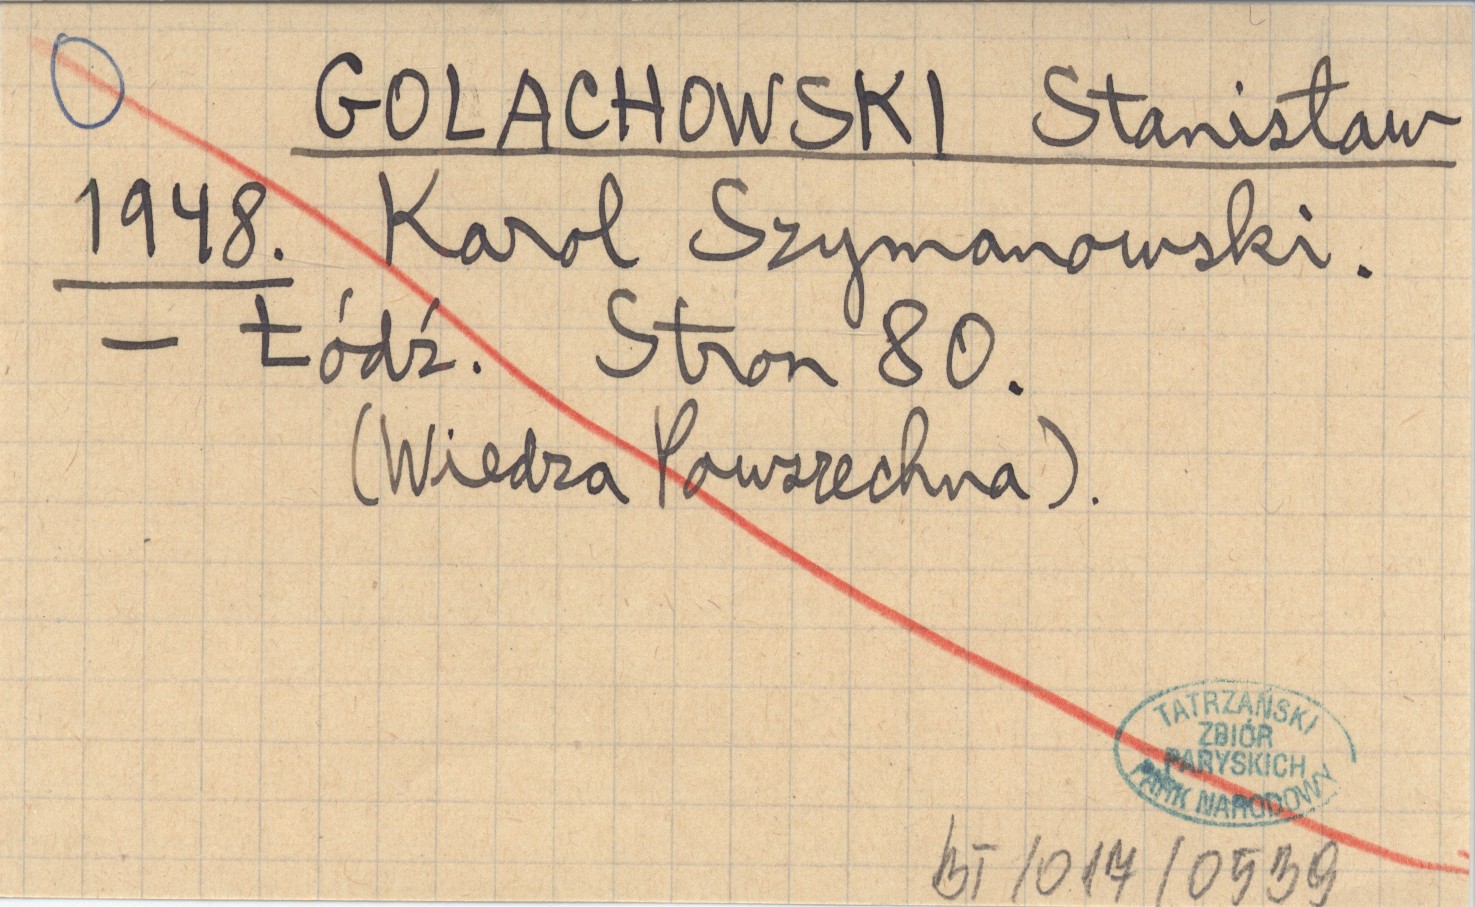 GOLACHOWSKI Stanisław
1948. Karol Szymanowski.
— Łódź. Stron 80.
(Wiedza Powszechna).
TATRZAŃSKI
ZBIÓR
PARYSKICH
PARK NARODOWY
BT/017/0539